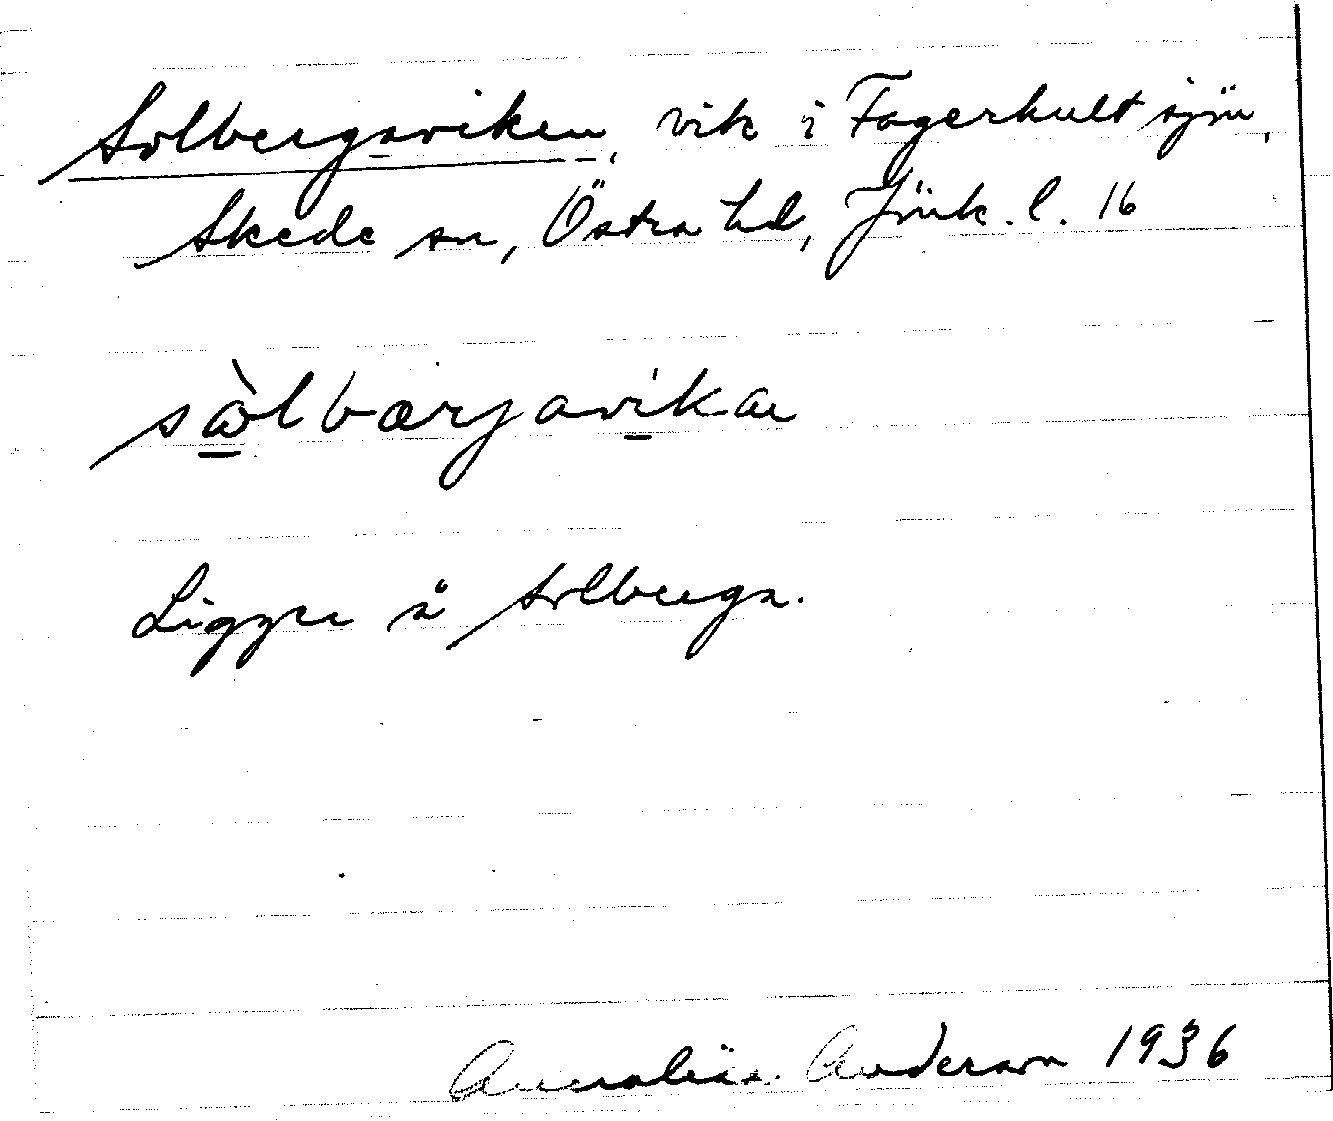 Solbergaviken, vik i Fagerhultsjön,
Skede sn, Östra hd, Jönk. l. 16
sòlbærjavikæ
Ligger å Solberga.
Anderson 1936